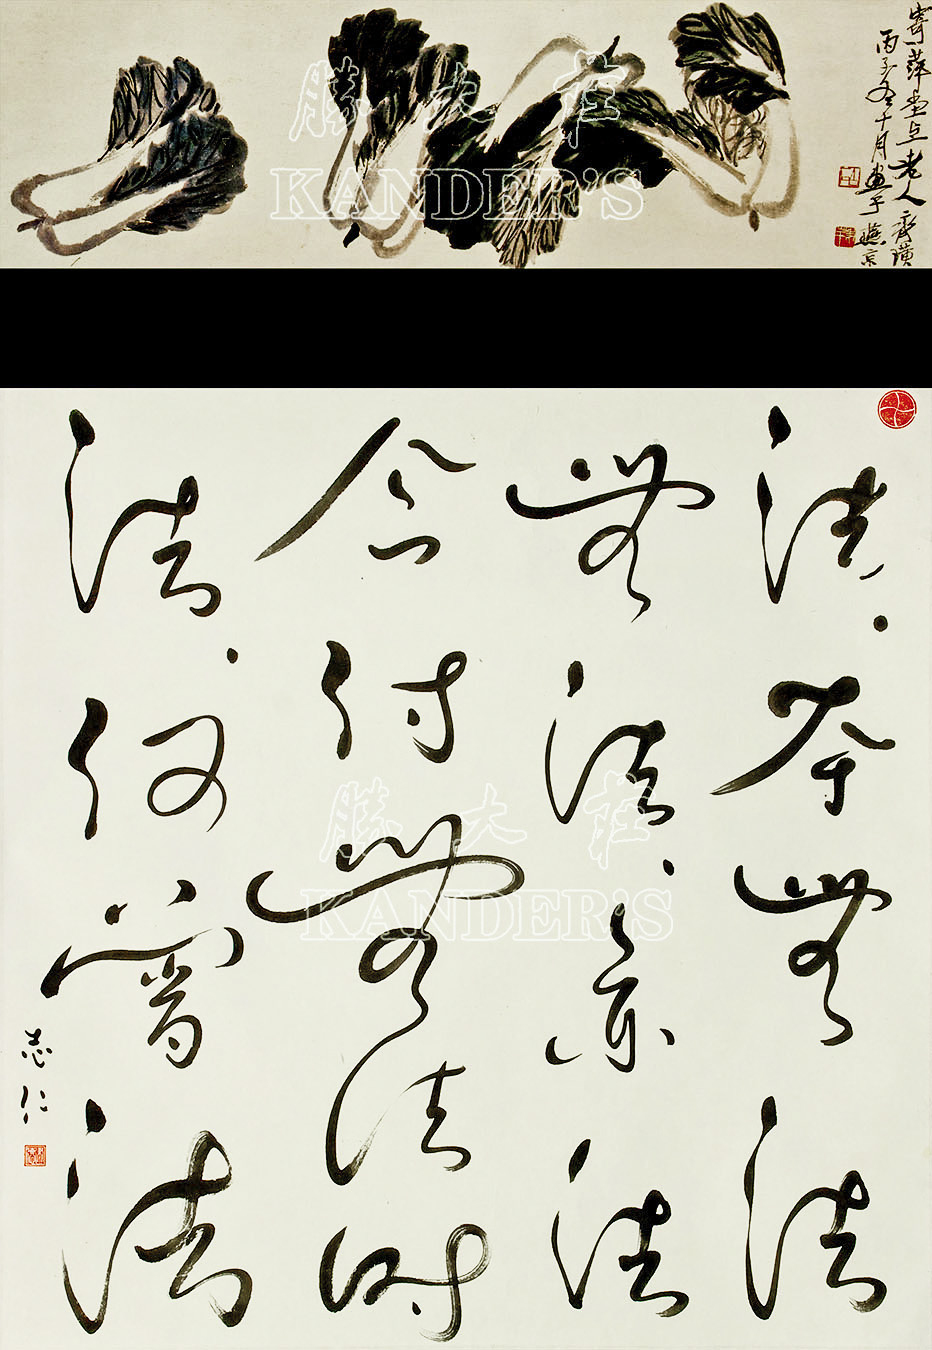 寄萍堂上老人齊璜
丙子冬十月畫于燕京
勝大莊
KANDER'S
法々本無法
無法々亦法
今付無法時
法々何曾法
志仁
勝大莊
KANDER'S